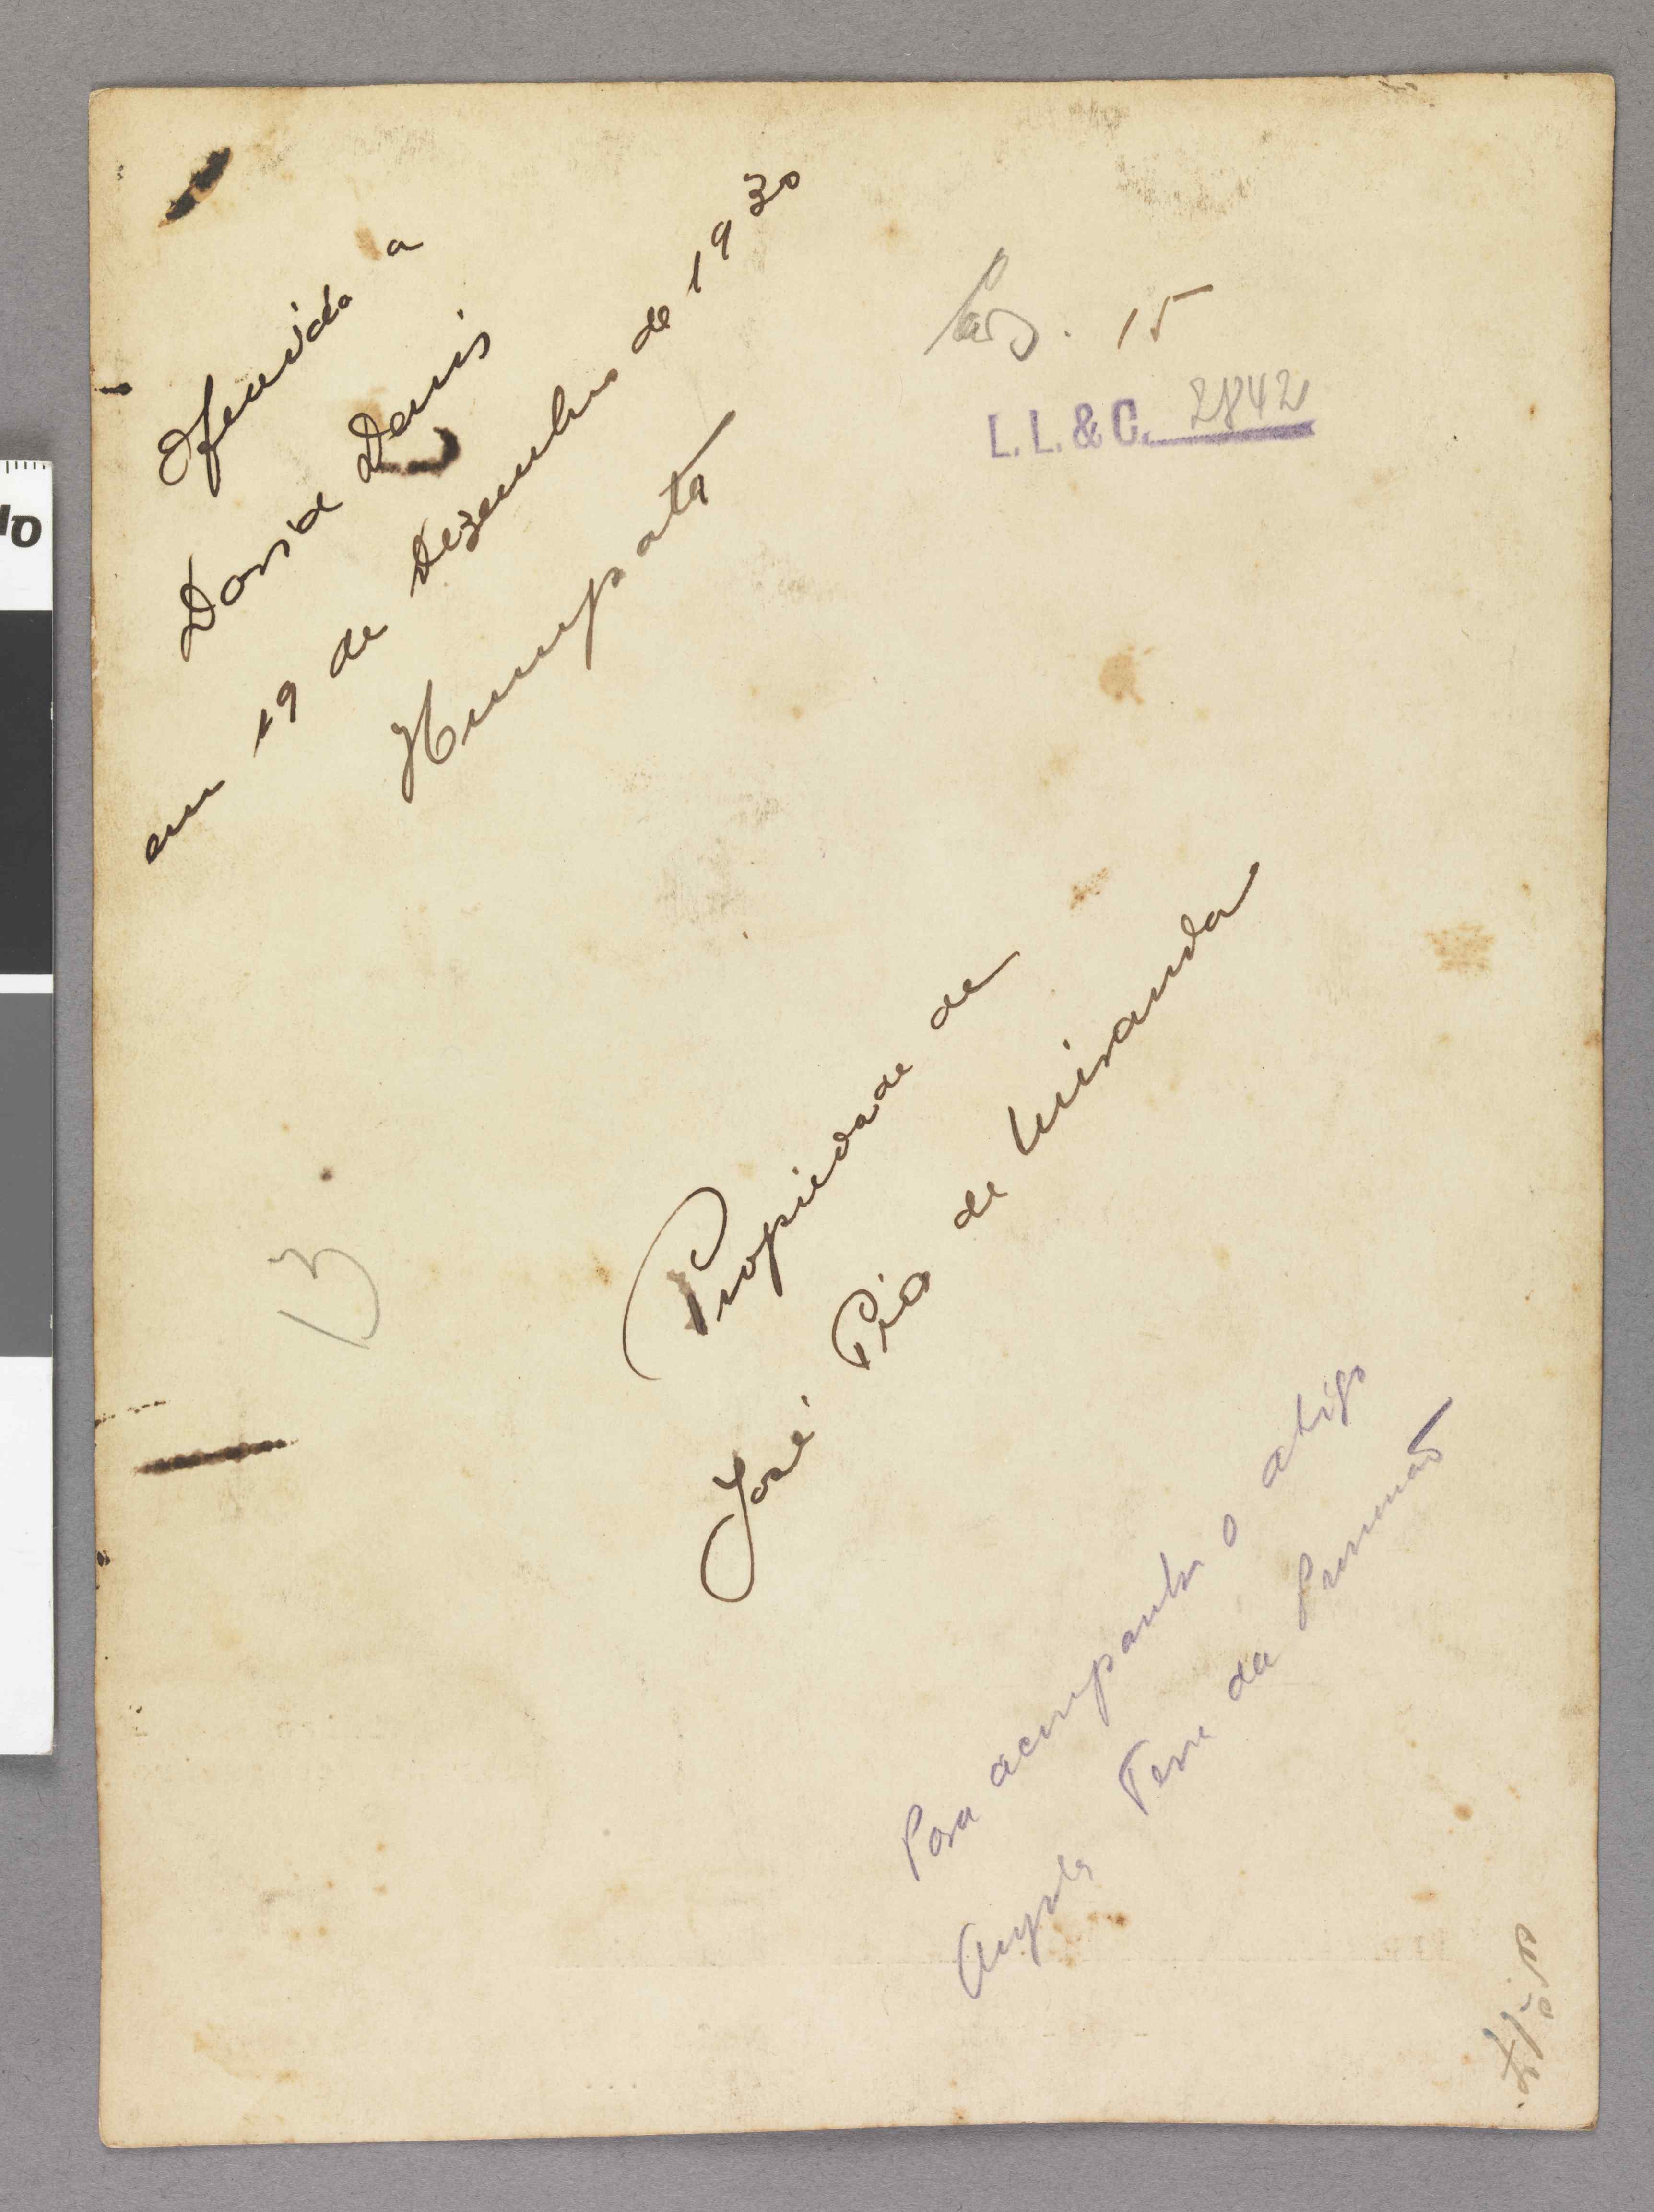 Oferecida a
David Denis
em 19 de Dezembro de 1930
Humpata
15
L. L. & C. 2842
Propriedade de
José Pio de Miranda
13
Para acompanhar o artigo
Angola Terra da Promissão